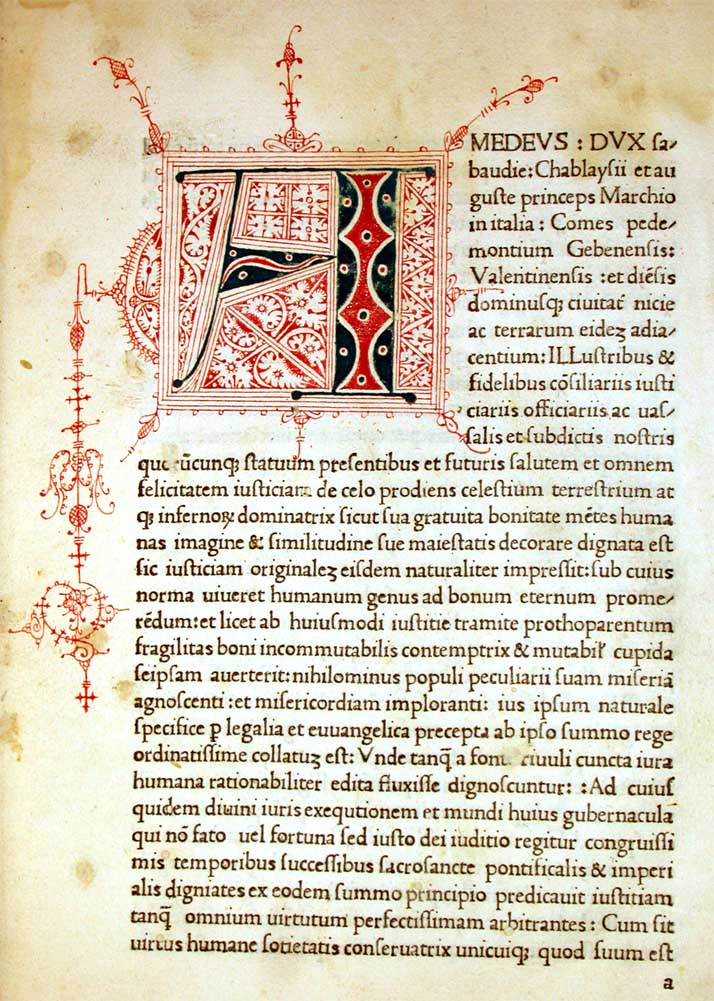 A
MEDEVS : DVX ſa-
baudie: Chablayſii et au
guſte princeps Marchio
in italia : Comes pede-
montium Gebenenſis:
Valentinenſis :et diẽſis
dominuſqꝫ ciuitať nicie
ac terrarum eideꝫ adia-
centium: ILLuſtribus &
fidelibus cõſiliariis iuſti
ciariis officiariis ac uaſ-
ſalis et ſubdictis noſtris
ũcunqꝫ ſtatuum preſentibus et futuris ſalutem et omnem
felicitatem iuſticiam de celo prodiens celeſtium terreſtrium at
qꝫ infernoꝝ dominatrix ſicut ſua gratuita bonitate mẽtes huma
nas imagine & ſimilitudine ſue maieſtatis decorare dignata eſt
ſic iuſticiam originaleꝫ eiſdem naturaliter impreſſit: ſub cuius
norma uiueret humanum genus ad bonum eternum prome-
rẽdum: et licet ab huiuſmodi iuſtitie tramite prothoparentum
fragilitas boni incommutabilis contemptrix & mutabiľ cupida
ſeipſam auerterit: nihilominus populi peculiarii ſuam miſeriã
agnoſcenti :et miſericordiam imploranti: ius ipſum naturale
ſpecifice ꝑ legalia et euuangelica precepta ab ipſo ſummo rege
ordinatiſſime collatuꝫ eſt: Vnde tanq̃ a fonte riuuli cuncta iura
humana rationabiliter edita fluxiſſe dignoſcuntur: :Ad cuius
quidem diuini iuris exequtionem et mundi huius gubernacula
qui nõ fato uel fortuna ſed iuſto dei iuditio regitur congruiſſi
mis temporibus ſucceſſibus ſacroſancte pontificalis & imperi
alis digniates ex eodem ſummo principio predicauit iuſtitiam
tanq̃ omnium uirtutum perfectiſſimam arbitrantes : Cum ſit
uirtus humane ſotietatis conſeruatrix unicuiqꝫ quod ſuum eſt
a